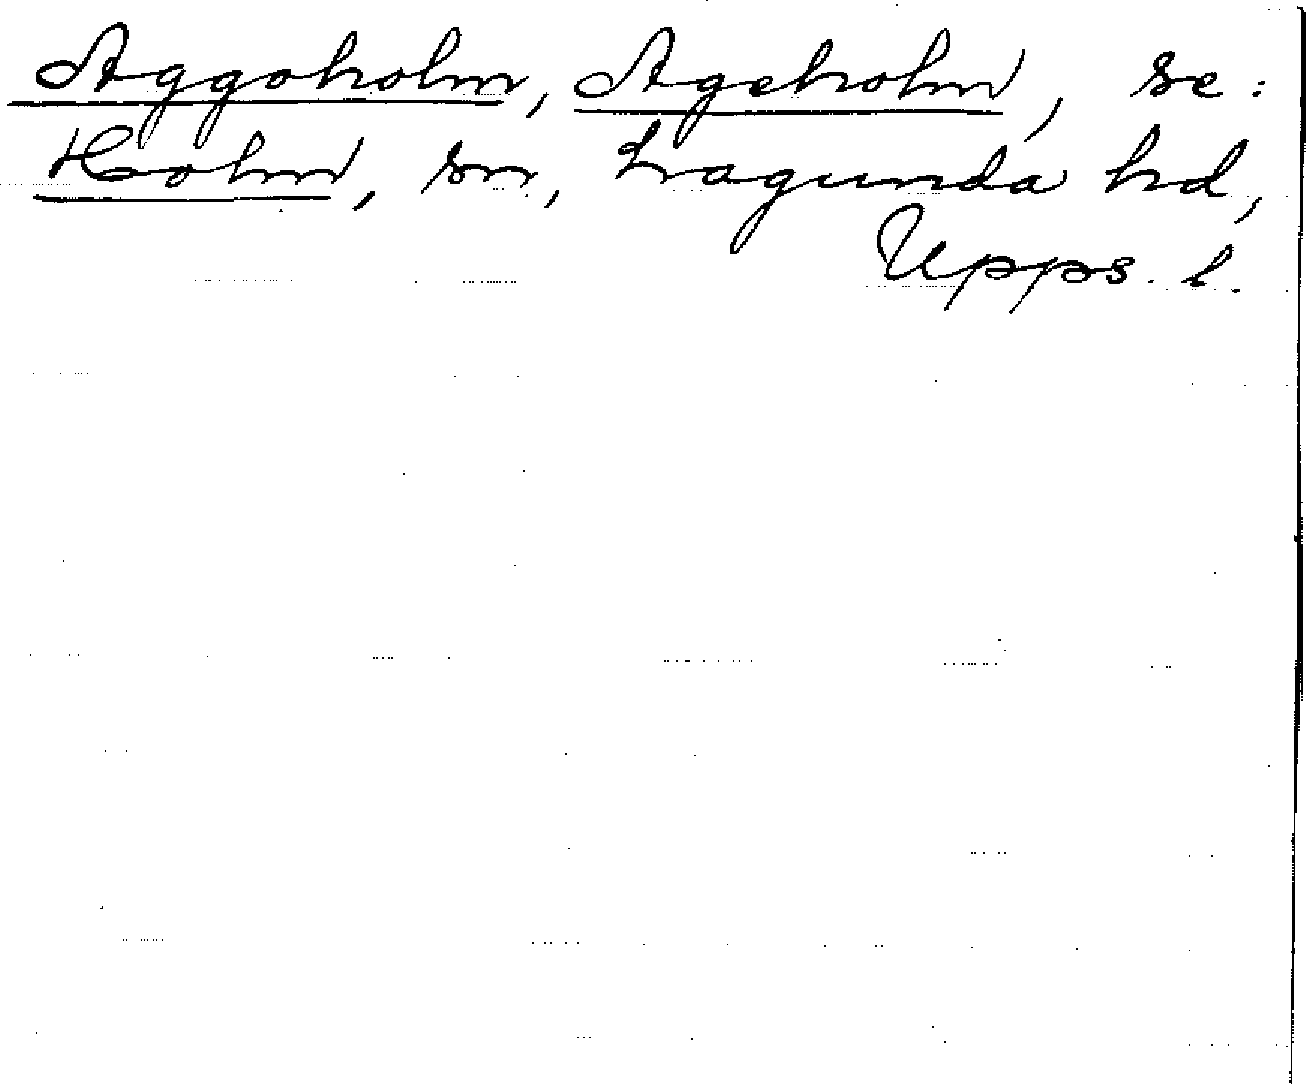 Aggoholm, Ageholm, se:
Holm, sn, Lagunda hd,
Upps. l.